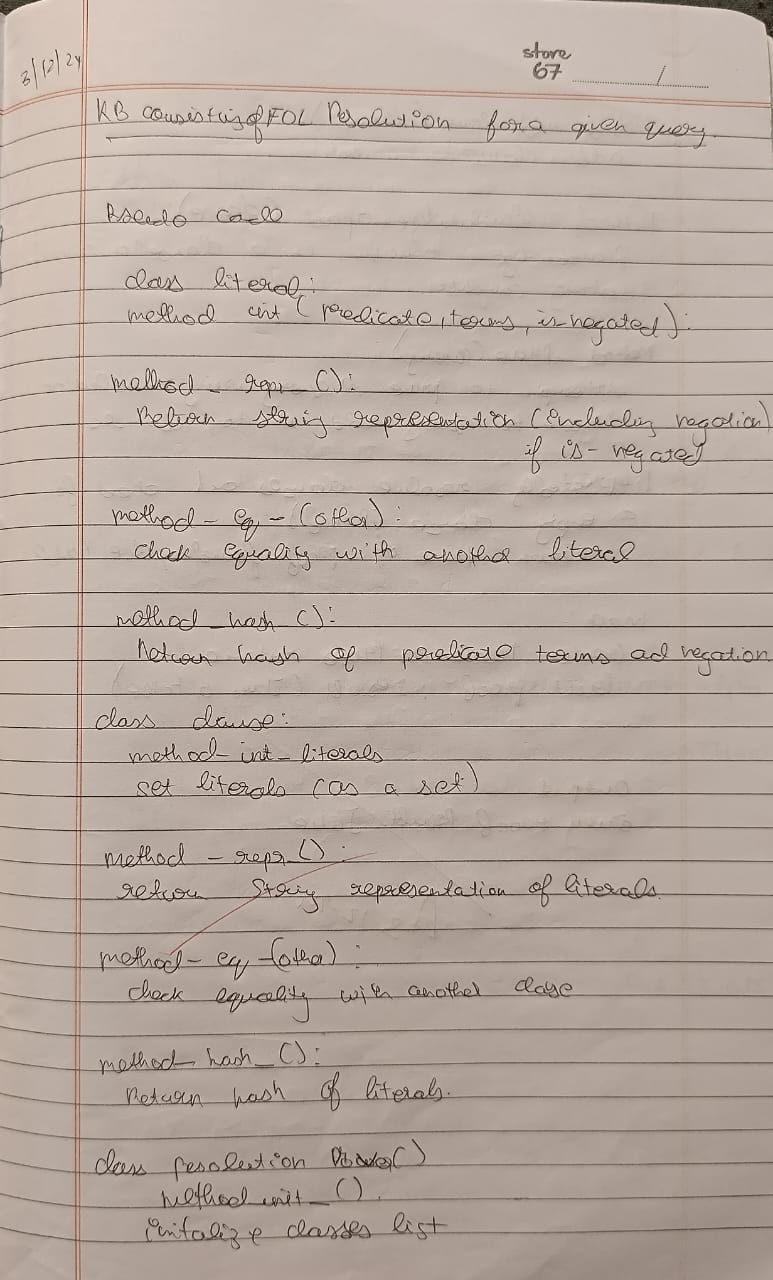 3/12/24
store
67
KB consisting of FOL Resolution for a given query.
Pseudo Code
class literal:
method init (predicate, terms, is-negated):
method - repr - ():
Return string representation (including negation)
if is - negated
method - eq - (other):
check equality with another literal
method _ hash _ ():
Return hash of predicate terms ad negation
class clause:
method - int _ literals
set literals (as a set)
method - repr _ ():
return string representation of literals.
method - eq - (other):
check equality with another clase
method _ hash _ ():
Return hash of literals.
class resolution ()
Method init _ ().
initalize classes list